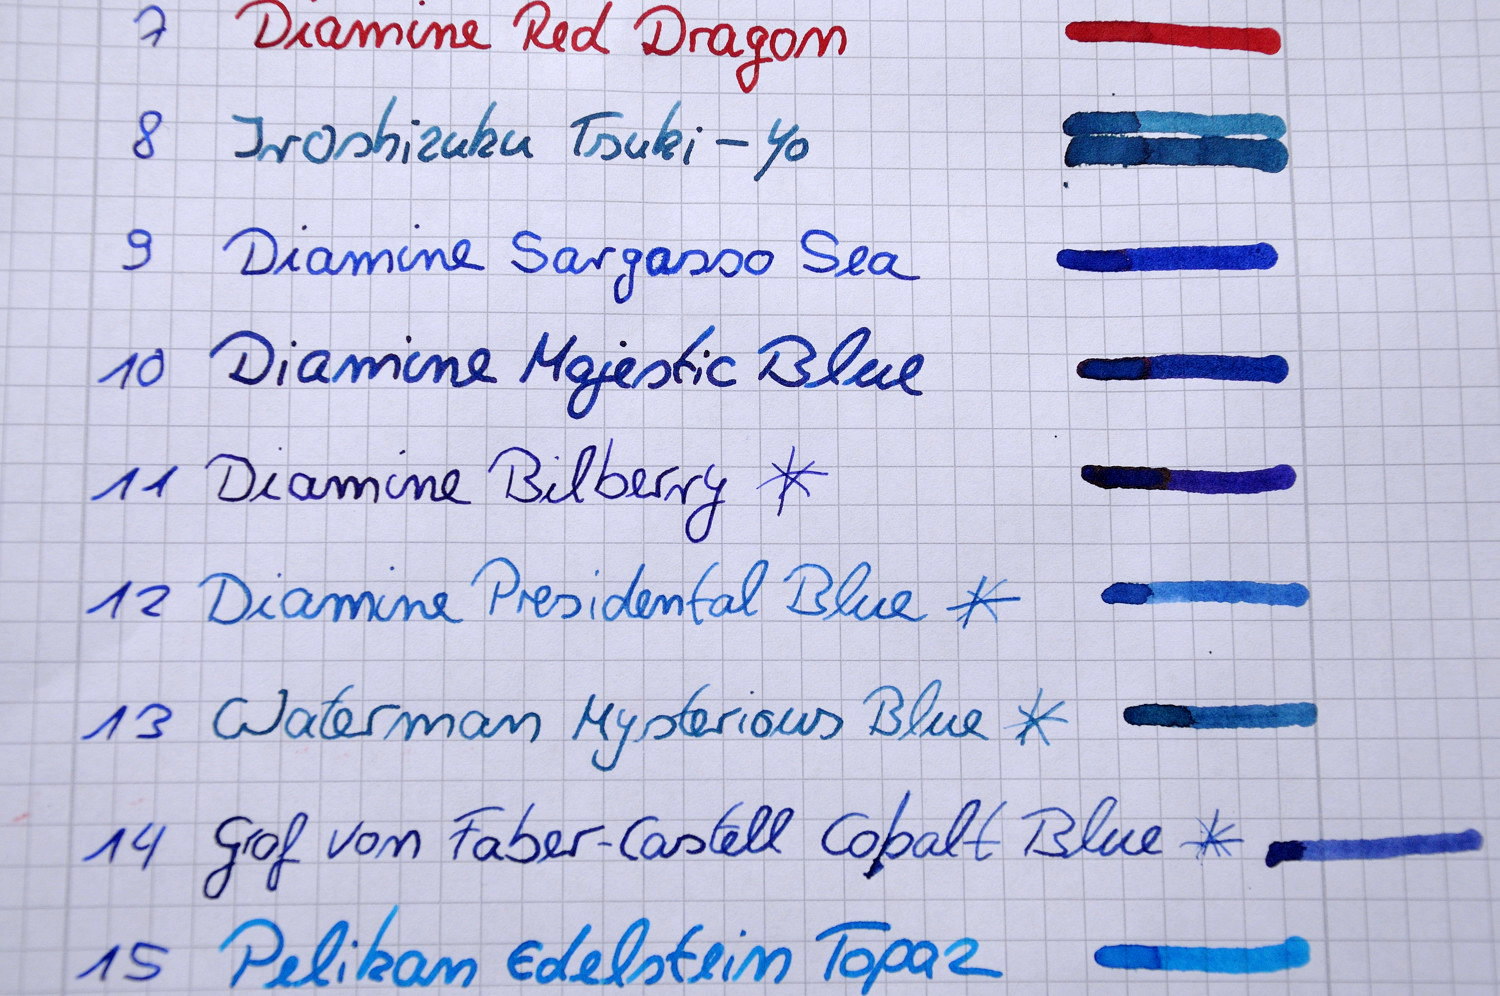 7 Diamine Red Dragon
8 Iroshizuku Tsuki-yo
9 Diamine Sargasso Sea
10 Diamine Majestic Blue
11 Diamine Bilberry *
12 Diamine Presidental Blue *
13 Waterman Mysterious Blue *
14 Graf von Faber-Castell Cobalt Blue *
15 Pelikan Edelstein Topaz